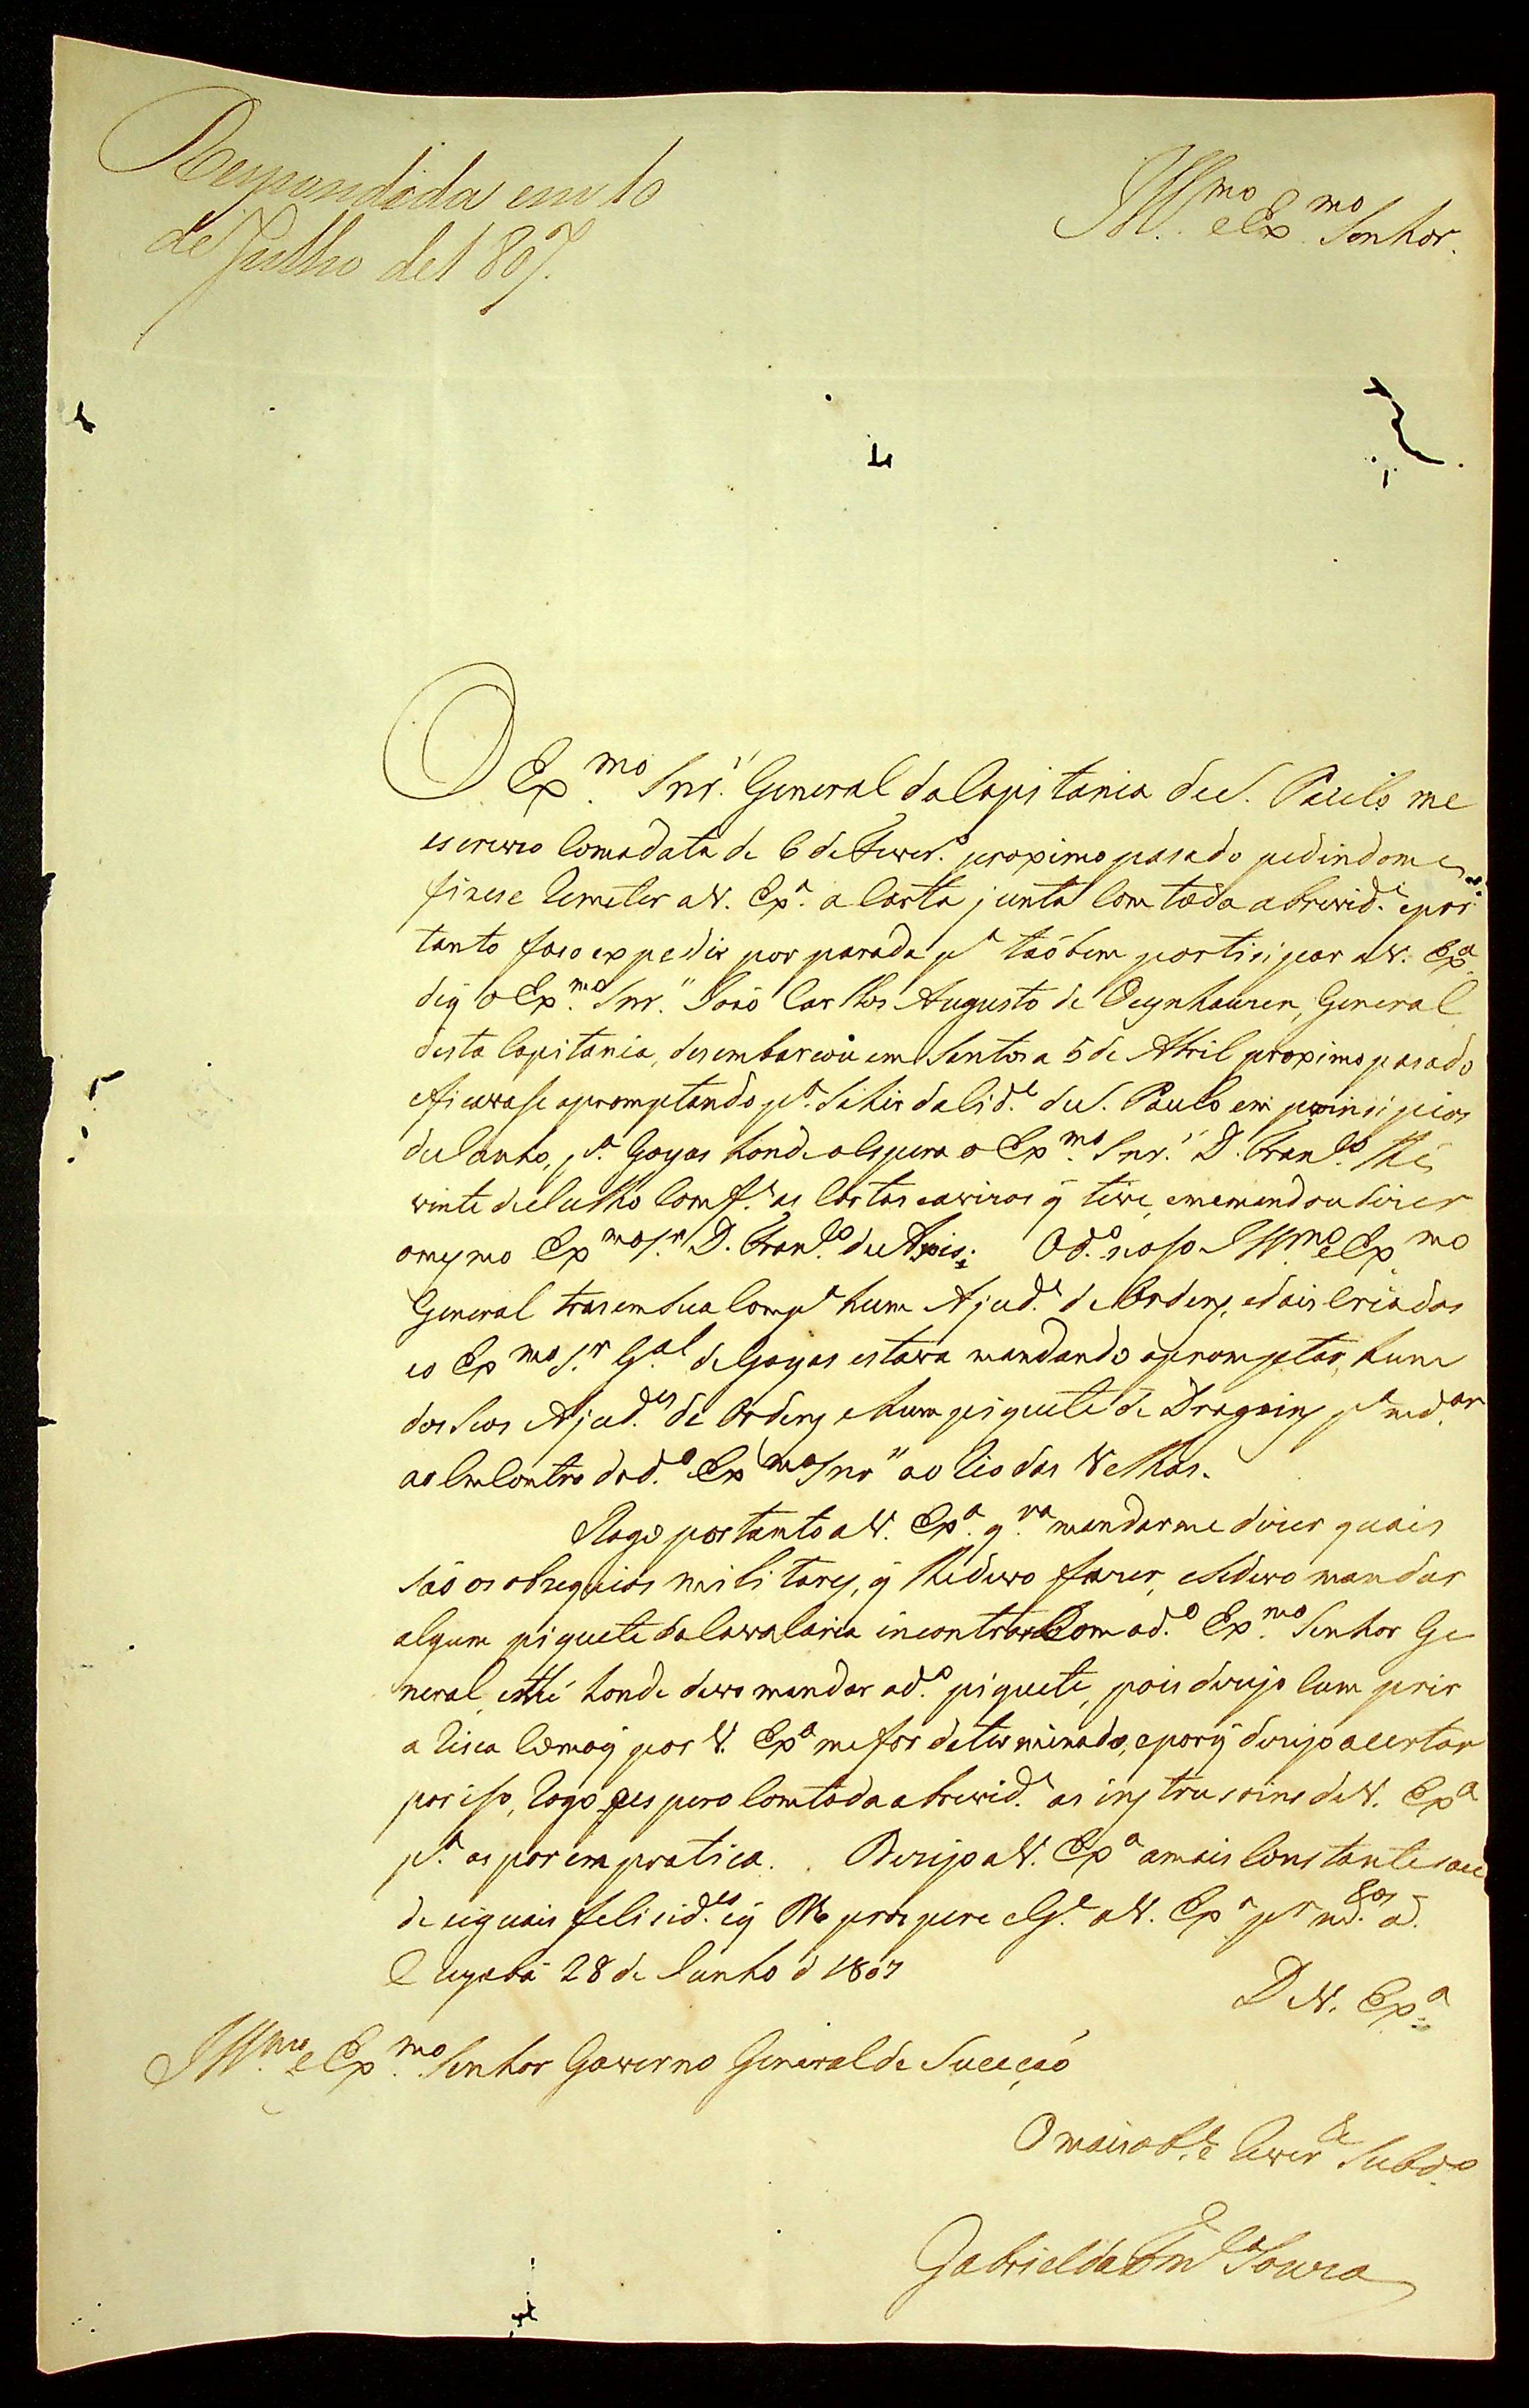 Respondida em 10
de Julho de 1807.
Ill.mo e Ex.mo Senhor.
O Ex.mo Snr.' General da Capitania de S. Paulo me
escreveo Com a data de 6 de Fever.o proximo pasado pedindome
fizese Remeter a V. Ex.a a Carta junta Com toda a brevid.e e por
tanto faso expedir por parada p.a taõbem partisipar a V. Ex.a
de q̃ o Ex.mo Snr.' Joaõ Carllos Augusto de Oeynhauzen, General
desta Capitania, desembarcou em Santos a 5 de Abril proximo pasado
e ficavase apromptando p.a Sahir da Cid.e de S. Paulo em prinsipios
de Junho, p.a Goyas honde o Espera o Ex.mo Snr.' D. Fran.co Thé
vinte de Julho Comf.e as Cartas e avizos q̃ tive, e me mandou dizer
o mesmo Ex.mo S.r D. Fran.co de Asis; O d.o noso Ill.mo e Ex.mo
General tras em Sua Comp.a hum Ajud.e de Ordens, e dois Criados
e o Ex.mo S.r G.al de Goyas estava mandando apromptar, hum
dos Seos Ajud.es de Ordens e hum piquete de Dragoins p.a mad.ar
ao Emcontro do d.o Ex.mo Snr' ao Rio das Velhas.
Rogo portanto a V. Ex.a q.ra mandarme dizer quais
saõ os obzequios militares, q̃ lhe devo fazer, e Se devo mandar
algum piquete da Cavalaria incontrar Com o d.o Ex.mo Senhor Ge
neral, e thé honde devo mandar o d.o piquete, pois dezejo Cumprir
a Risca Como q̃ por V. Ex.a me for determinado, e porq̃ dezejo acertar
por iso, Rogo e espero Com toda a brevid.e as instrusoins de V. Ex.a
p.a as por em pratica. Dezejo a V. Ex.a a mais Constante sau
de e iguais felisid.es e q̃ D.s prospere e G.e a V. Ex.a p.r m.tos a.
Cuyabá 28 de Junho d 1807
D V. Ex.a
Ill.mo e Ex.mo Senhor Governo General de Suceçaõ
O mais ob.e e Rever.e Subd.o
Gabriel da Fon.ca e Souza